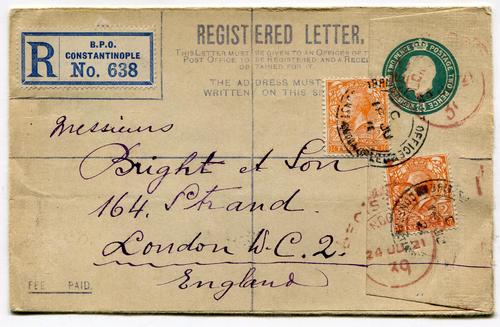 REGISTERED LETTER.
THIS LETTER MUST BE GIVEN TO AN OFFICER OF THE
POST OFFICE TO BE REGISTERED AND A RECEIPT
OBTAINED FOR IT.
THE ADDRESS MUST BE
WRITTEN ON THIS SIDE
R
B.P.O.
CONSTANTINOPLE
No. 638
POSTAGE TWO PENCE
Messieurs
Bright et Son
164. Strand.
London W.C. 2.
England
FEE PAID.
24 JU 21